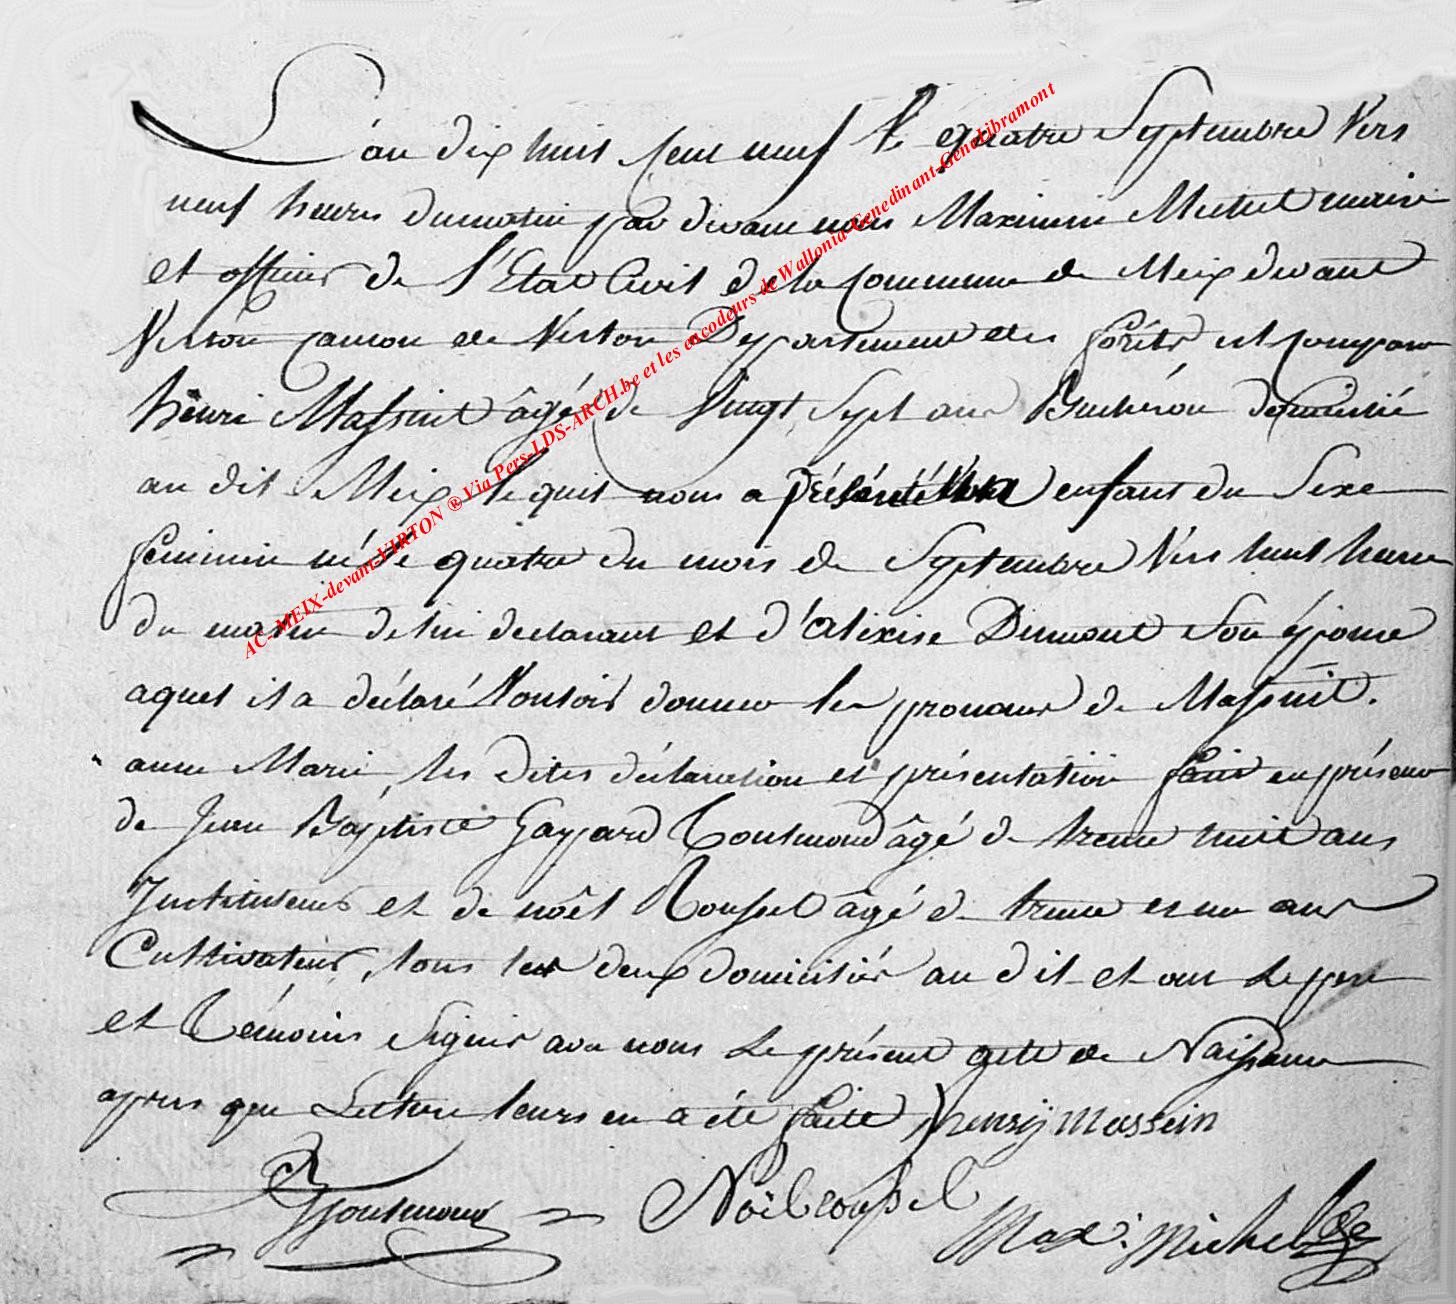 L'an dix huit cent neuf le quatre Septembre Vers
neuf heures du matin par devant nous Maximin Michel maire
et officier de l'Etat Civil de la Commune de Meix devant
Virton canton de Virton Departement des forêts est comparu
henri Massint âgé de Vingt Sept ans Bucheron domicilié
au dit Meix lequel nous a présenté un enfant du Sexe
feminin né le quatre du mois de Septembre Vers huit heures
du matin de lui declarant et d'Alexise Dumont Son épouse
aquel il a déclaré Vouloir donner les prenoms de Massint.
anne Marie, les dites déclaration et présentation faite en présence
de Jean Baptiste Gaspard Toussmond âgé de trente huit ans
Instituteur et de noël Roussel âgé de trente et un ans
Cultivateur, tous les deux domiciliés au dit et ont le pere
et Témoins Signés avec nous le présent acte de Naissance
apres que Lecture leurs en a été faite henrÿ massein
Noël
Max: Michel
AC-MEIX-devant-VIRTON ® Via Pers-LDS-ARCH.be et les encodeurs de Wallonia-Genedinant-GeneLibramont